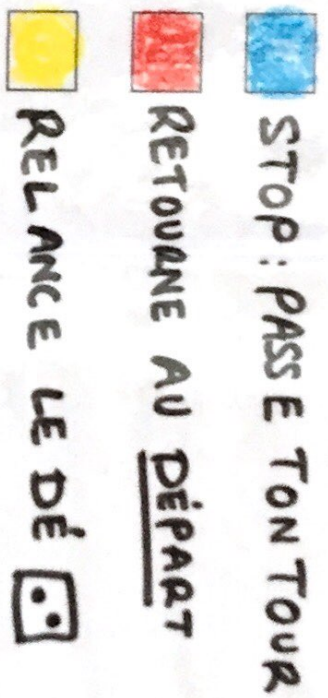 STOP : PASSE TON TOUR
RETOURNE AU DÉPART
RELANCE LE DÉ